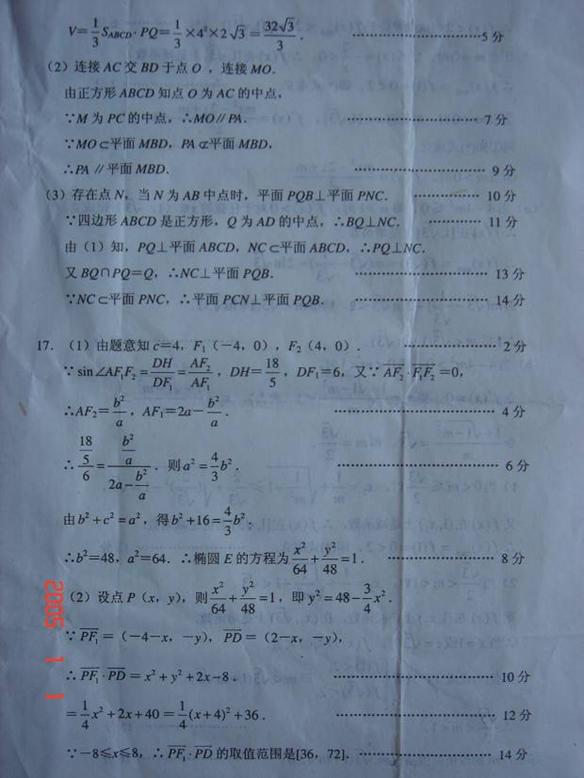 V=1/3 S_ABCD·PQ=1/3×4²×2√3=32√3/3. ……5分
(2)连接AC交BD于点O,连接MO.
由正方形ABCD知点O为AC的中点,
∵M为PC的中点,∴MO∥PA. ……7分
∵MO⊂平面MBD,PA⊄平面MBD,
∴PA∥平面MBD. ……9分
(3)存在点N,当N为AB中点时,平面PQB⊥平面PNC. ……10分
∵四边形ABCD是正方形,Q为AD的中点,∴BQ⊥NC. ……11分
由(1)知,PQ⊥平面ABCD,NC⊂平面ABCD,∴PQ⊥NC.
又BQ∩PQ=Q,∴NC⊥平面PQB. ……13分
∵NC⊂平面PNC,∴平面PCN⊥平面PQB. ……14分
17.(1)由题意知c=4,F₁(-4,0),F₂(4,0). ……2分
∵sin∠AF₁F₂=DH/DF₁=AF₂/AF₁,DH=18/5,DF₁=6,又∵AF₂·F₁F₂=0,
∴AF₂=b²/a,AF₁=2a-b²/a. ……4分
∴(18/5)/6=(b²/a)/(2a-b²/a).则a²=4/3b². ……6分
由b²+c²=a²,得b²+16=4/3b².
∴b²=48,a²=64.∴椭圆E的方程为x²/64+y²/48=1. ……8分
(2)设点P(x,y),则x²/64+y²/48=1,即y²=48-3/4x².
∵PF₁=(-4-x,-y),PD=(2-x,-y),
∴PF₁·PD=x²+y²+2x-8. ……10分
=1/4x²+2x+40=1/4(x+4)²+36. ……12分
∵-8≤x≤8,∴PF₁·PD的取值范围是[36,72]. ……14分
2005 1 1